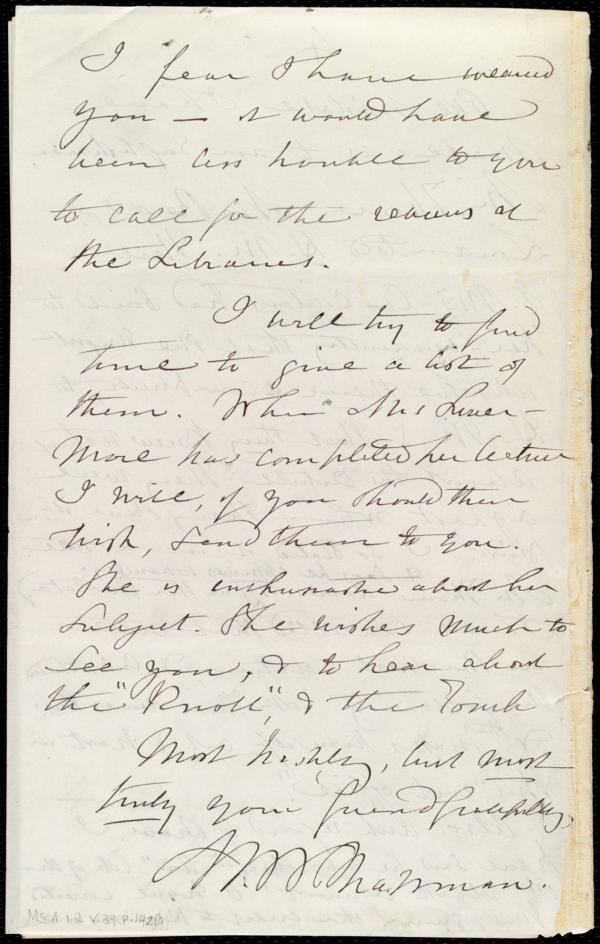 I fear I have wearied
you — it would have
been less trouble to you
to call for the reviews at
the Libraries.
I will try to find
time to give a list of
them. When Mrs Liver-
more has completed her lecture
I will, if you should then
wish, send them to you.
She is enthusiastic about her
subject. She wishes much to
see you, & to hear about
the "Knoll", & the Tomb
Most hastily, but most
truly your friend gratefully,
M. W. Chapman.
MS. A. 1.2 V. 39. P. 142B